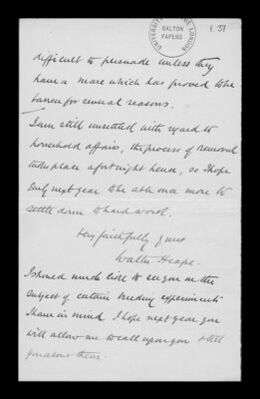 UNIVERSITY LONDON
GALTON
PAPERS
f. 37
difficult to persuade unless they
have a mare which has proved to be
barren for several seasons.
I am still unsettled with regard to
household affairs, the process of removal
takes place a fortnight hence, so I hope
early next year to be able once more to
settle down to hard work.
Very faithfully yours
Walter Heape.
I should much like to see you on the
subject of certain breeding experiments
I have in mind. I hope next year you
will allow me to call upon you & tell
you about them.